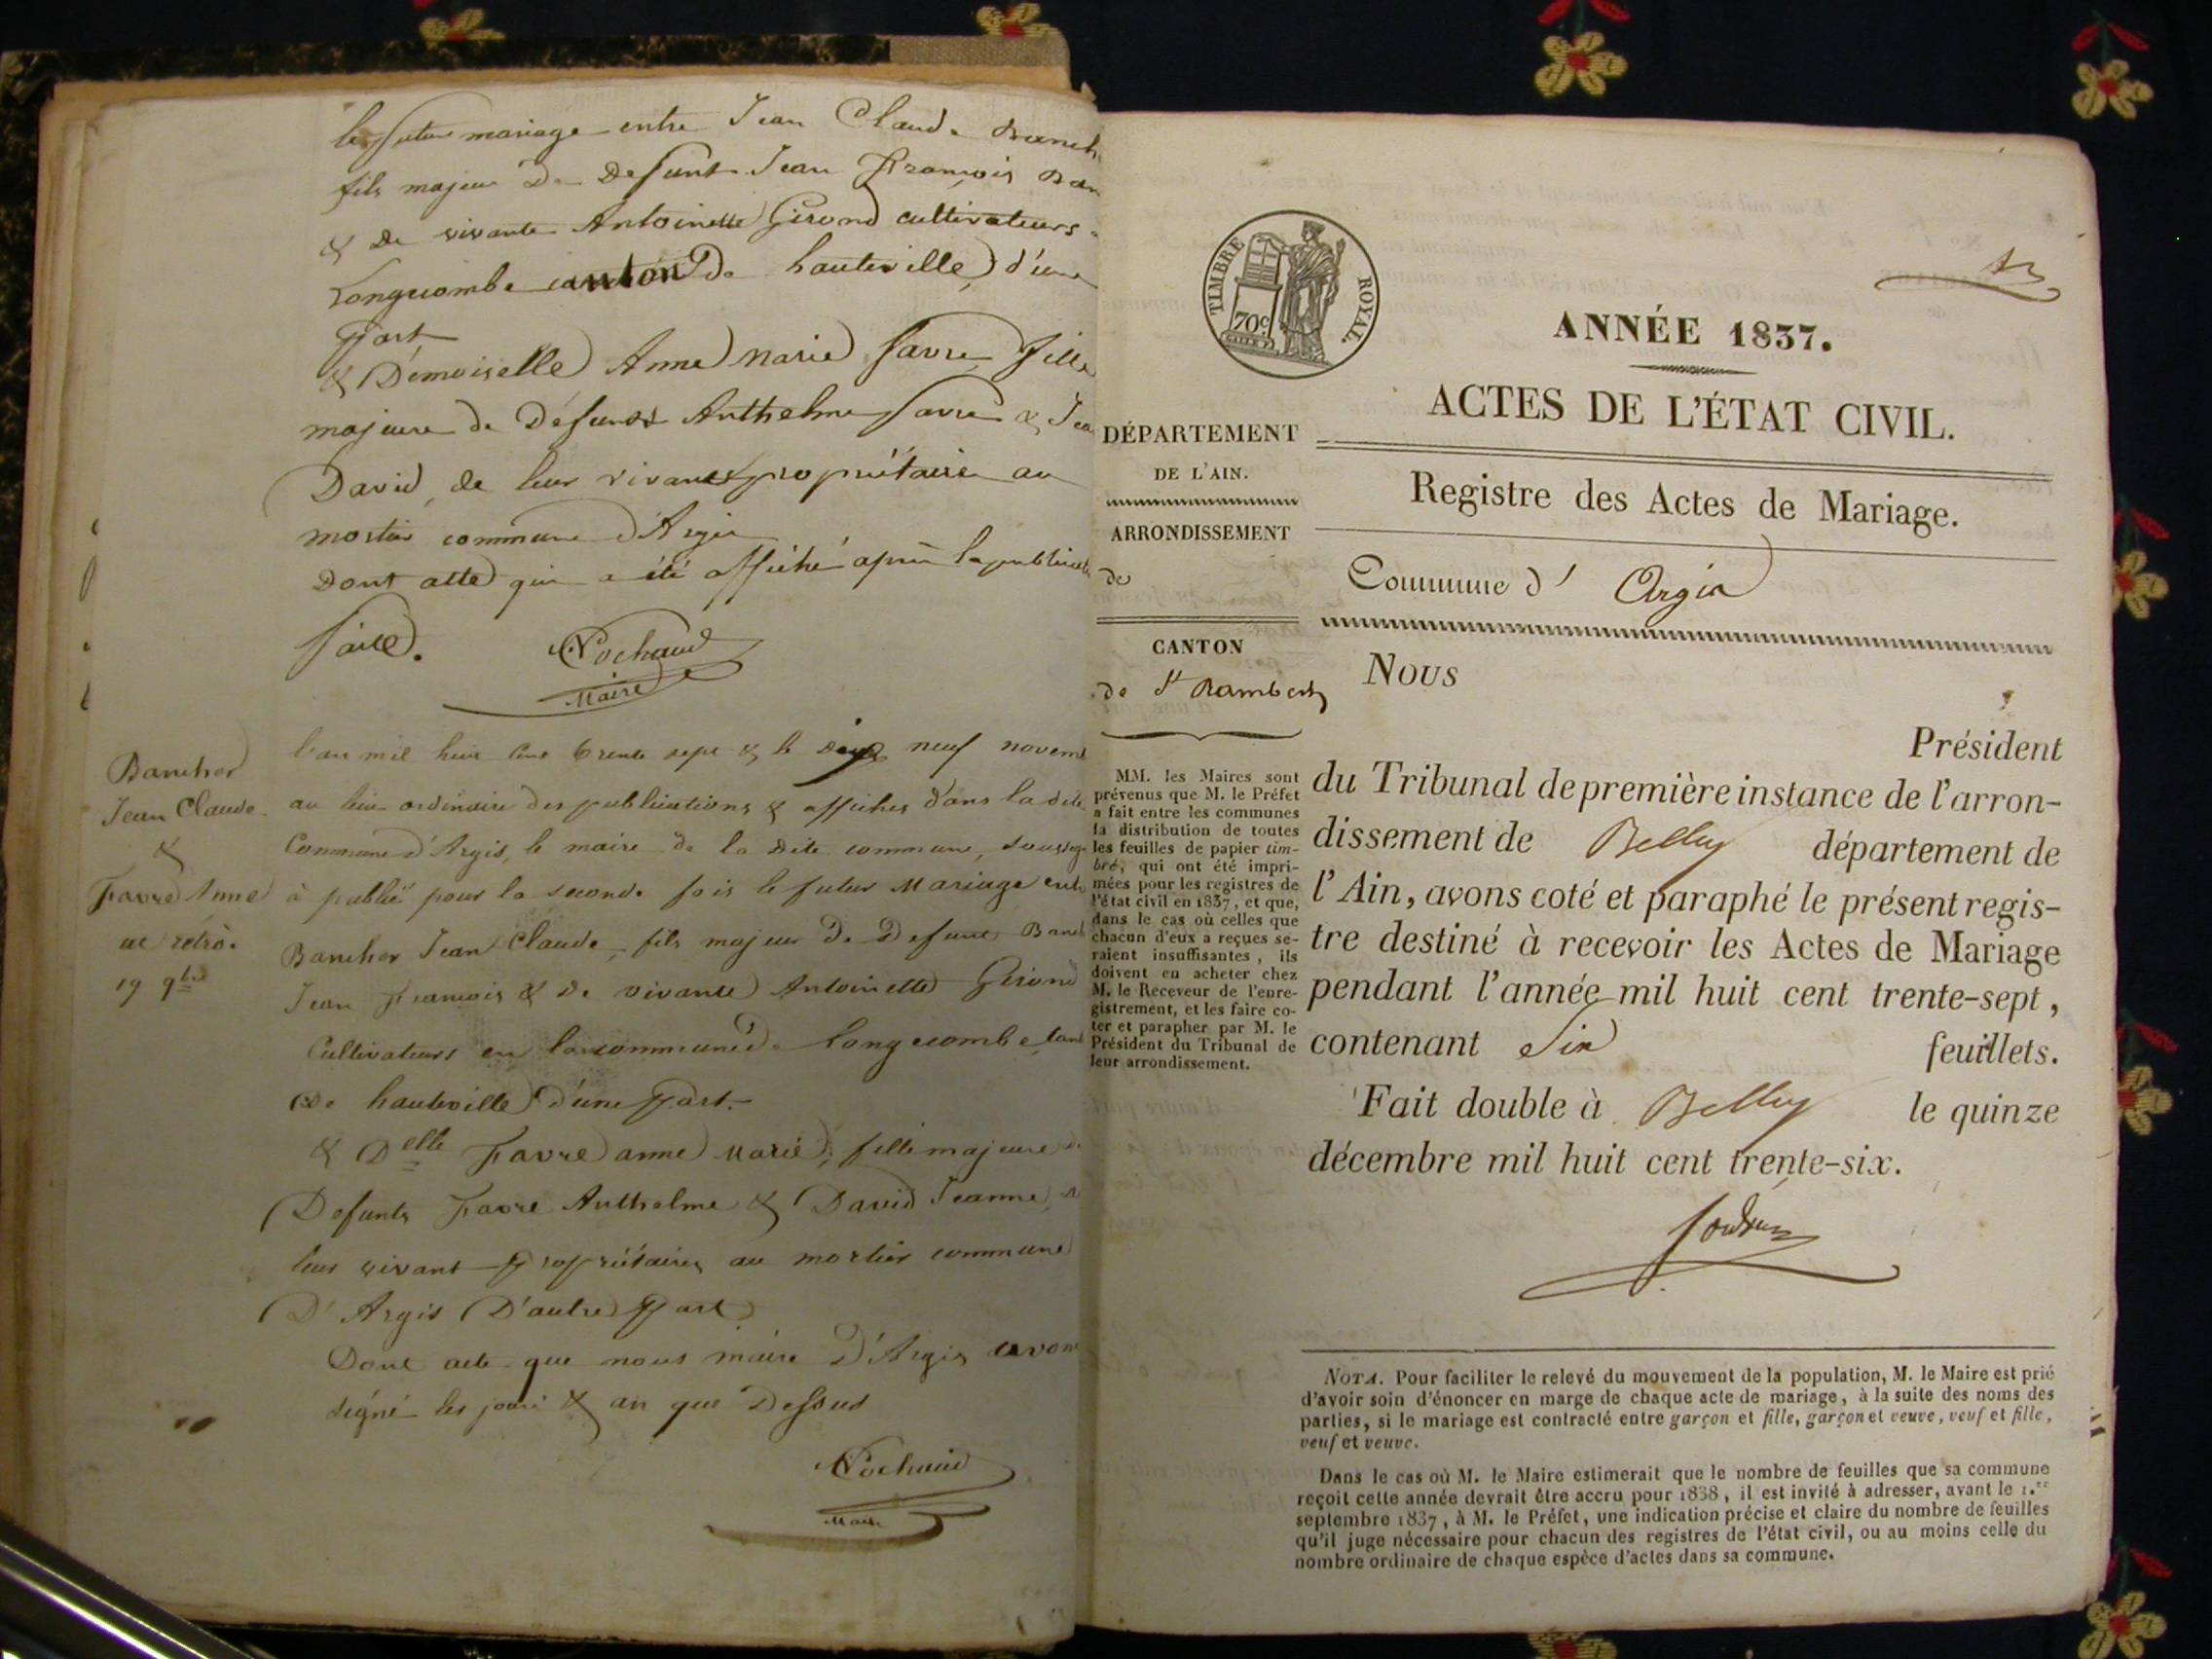 le futur mariage entre Jean Claude Banch
fils majeur De Defunt Jean François Ban
& De vivante Antoinette Girond cultivateurs
Longecombe canton De hauteville d'une
part
& Demoiselle Anne Marie favre fille
majeure de Défunts Anthelme favre & Jea
David, de leur vivant propriétaire au
mortier commune D'Argis
Dont acte qui a été affiché après la publicati
faite.
Cochaud
Maire
Bancher
Jean Claude
&
Favre Anne
19 9bre
l'an mil huit cent trente sept & le Dix neuf novem
au lieu ordinaire des publications & affiches dans la dite
Commune d'Argis, le maire de la dite commune, soussig
à publié pour la seconde fois le futur Mariage entr
Bancher Jean Claude, fils majeur De Defunt Banch
Jean François & De vivante Antoinette Girond
Cultivateurs en la commune De Longecombe, cant
De hauteville D'une Part.
& Delle Favre anne Marie, fille majeure d
Defunts Favre Anthelme & David Jeanne, d
leur vivant Propriétaires au mortier commune
D'Argis D'autre Part
Dont acte que nous maire D'Argis avons
signé les jour & an que Dessus
Cochaud
Maire
TIMBRE ROYAL.
70c.
ANNÉE 1837.
ACTES DE L'ÉTAT CIVIL.
Registre des Actes de Mariage.
Commune d' Argis
DÉPARTEMENT
DE L'AIN.
ARRONDISSEMENT
de
CANTON
de St Rambert
MM. les Maires sont
prévenus que M. le Préfet
a fait entre les communes
la distribution de toutes
les feuilles de papier tim-
bré, qui ont été impri-
mées pour les registres de
l'état civil en 1837, et que,
dans le cas où celles que
chacun d'eux a reçues se-
raient insuffisantes, ils
doivent en acheter chez
M. le Receveur de l'enre-
gistrement, et les faire co-
ter et parapher par M. le
Président du Tribunal de
leur arrondissement.
Nous
Président
du Tribunal de première instance de l'arron-
dissement de Belley département de
l'Ain, avons coté et paraphé le présent regis-
tre destiné à recevoir les Actes de Mariage
pendant l'année mil huit cent trente-sept,
contenant Six feuillets.
Fait double à Belley le quinze
décembre mil huit cent trente-six.
NOTA. Pour faciliter le relevé du mouvement de la population, M. le Maire est prié
d'avoir soin d'énoncer en marge de chaque acte de mariage, à la suite des noms des
parties, si le mariage est contracté entre garçon et fille, garçon et veuve, veuf et fille,
veuf et veuve.
Dans le cas où M. le Maire estimerait que le nombre de feuilles que sa commune
reçoit cette année devrait être accru pour 1838, il est invité à adresser, avant le 1.er
septembre 1837, à M. le Préfet, une indication précise et claire du nombre de feuilles
qu'il juge nécessaire pour chacun des registres de l'état civil, ou au moins celle du
nombre ordinaire de chaque espèce d'actes dans sa commune.